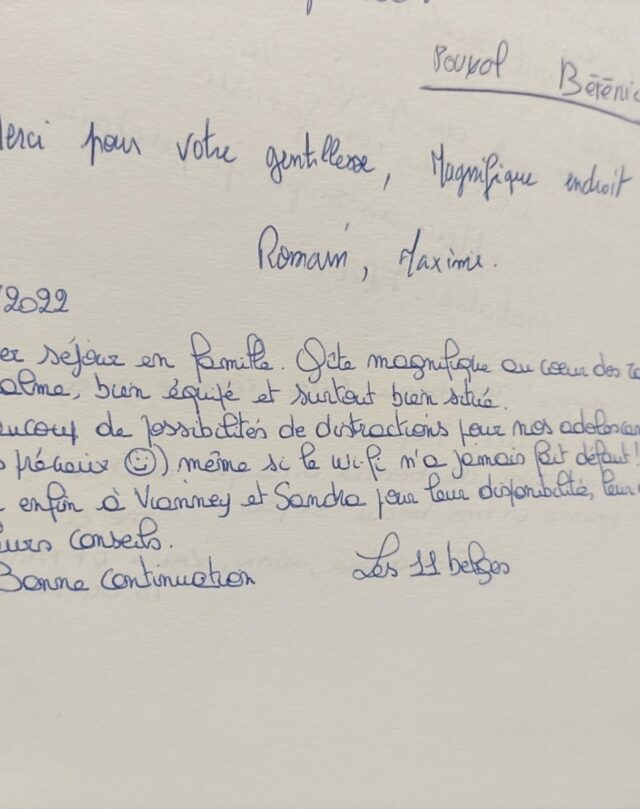 Pouxol Bérénic
erci pour votre gentillesse, Magnifique endroit
Romain, Maxime.
/2022
er séjour en famille. Gîte magnifique au coeur des
alme, bien équipé et surtout bien situé.
eaucoup de possibilités de distractions pour nos adolescen
préhaux ☺) même si le wifi n'a jamais fait défaut!
enfin à Vianney et Sandra pour leur disponibilité, leur
urs conseils.
Bonne continuation Les 11 belges